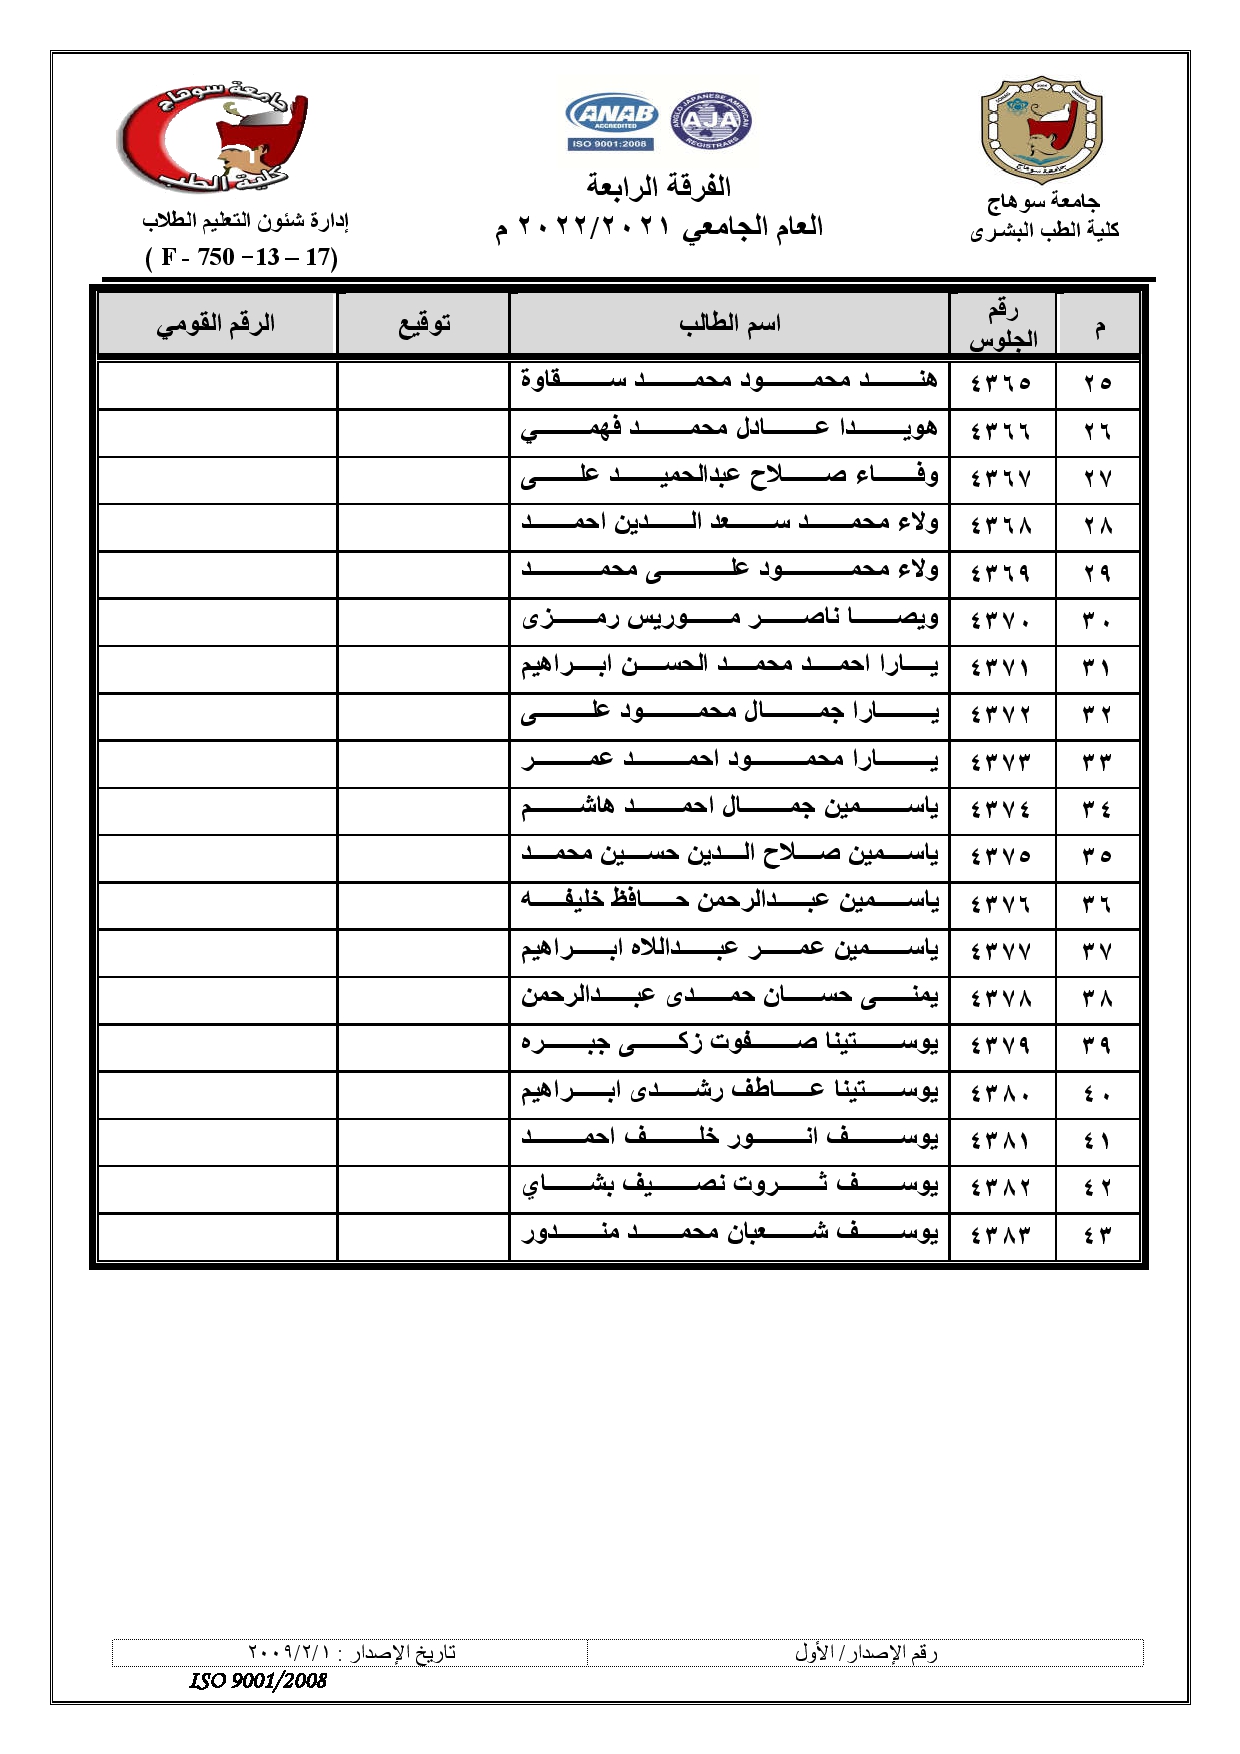 جامعة سوهاج
كلية الطب
ANAB
ACCREDITED
ISO 9001:2008
ANGLO JAPANESE AMERICAN
AJA
REGISTRARS
جامعة سوهاج
جامعة سوهاج
كلية الطب البشرى
الفرقة الرابعة
العام الجامعي ٢٠٢٢/٢٠٢١ م
إدارة شئون التعليم الطلاب
( F - 750 –13 – 17)
م رقم الجلوس اسم الطالب توقيع الرقم القومي
٢٥ ٤٣٦٥ هند محمود محمد سقاوة
٢٦ ٤٣٦٦ هويدا عادل محمد فهمي
٢٧ ٤٣٦٧ وفاء صلاح عبدالحميد على
٢٨ ٤٣٦٨ ولاء محمد سعد الدين احمد
٢٩ ٤٣٦٩ ولاء محمود على محمد
٣٠ ٤٣٧٠ ويصا ناصر موريس رمزى
٣١ ٤٣٧١ يارا احمد محمد الحسن ابراهيم
٣٢ ٤٣٧٢ يارا جمال محمود على
٣٣ ٤٣٧٣ يارا محمود احمد عمر
٣٤ ٤٣٧٤ ياسمين جمال احمد هاشم
٣٥ ٤٣٧٥ ياسمين صلاح الدين حسين محمد
٣٦ ٤٣٧٦ ياسمين عبدالرحمن حافظ خليفه
٣٧ ٤٣٧٧ ياسمين عمر عبداللاه ابراهيم
٣٨ ٤٣٧٨ يمنى حسان حمدى عبدالرحمن
٣٩ ٤٣٧٩ يوستينا صفوت زكى جبره
٤٠ ٤٣٨٠ يوستينا عاطف رشدى ابراهيم
٤١ ٤٣٨١ يوسف انور خلف احمد
٤٢ ٤٣٨٢ يوسف ثروت نصيف بشاي
٤٣ ٤٣٨٣ يوسف شعبان محمد مندور
رقم الإصدار/ الأول تاريخ الإصدار : ٢٠٠٩/٢/١
ISO 9001/2008